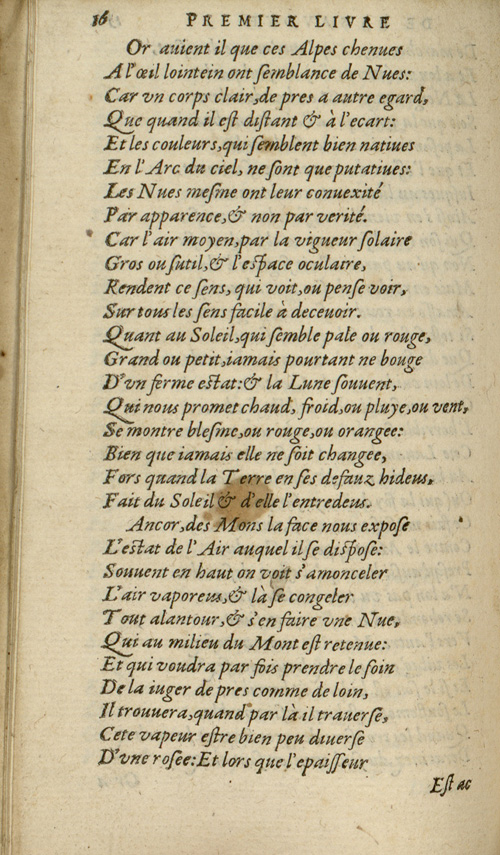 16 PREMIER LIVRE
Or auient il que ces Alpes chenues
A l'œil lointein ont ſemblance de Nues:
Car vn corps clair, de pres a autre egard,
Que quand il eſt diſtant & à l'ecart:
Et les couleurs, qui ſemblent bien natiues
En l'Arc du ciel, ne ſont que putatiues:
Les Nues meſme ont leur conuexité
Par apparence, & non par verité.
Car l'air moyen, par la vigueur ſolaire
Gros ou ſutil, & l'eſpace oculaire,
Rendent ce ſens, qui voit, ou penſe voir,
Sur tous les ſens facile à deceuoir.
Quant au Soleil, qui ſemble pale ou rouge,
Grand ou petit, iamais pourtant ne bouge
D'vn ferme eſtat: & la Lune ſouuent,
Qui nous promet chaud, froid, ou pluye, ou vent,
Se montre bleſme, ou rouge, ou orangee:
Bien que iamais elle ne ſoit changee,
Fors quand la Terre en ſes defauz hideus,
Fait du Soleil & d'elle l'entredeus.
Ancor, des Mons la face nous expoſe
L'eſtat de l'Air auquel il ſe diſpoſe:
Souuent en haut on voit s'amonceler
L'air vaporeus, & là ſe congeler
Tout alantour, & s'en faire vne Nue,
Qui au milieu du Mont eſt retenue:
Et qui voudra par fois prendre le ſoin
De la iuger de pres comme de loin,
Il trouuera, quand par là il trauerſe,
Cete vapeur eſtre bien peu diuerſe
D'vne roſee: Et lors que l'epaiſſeur
Eſt ac